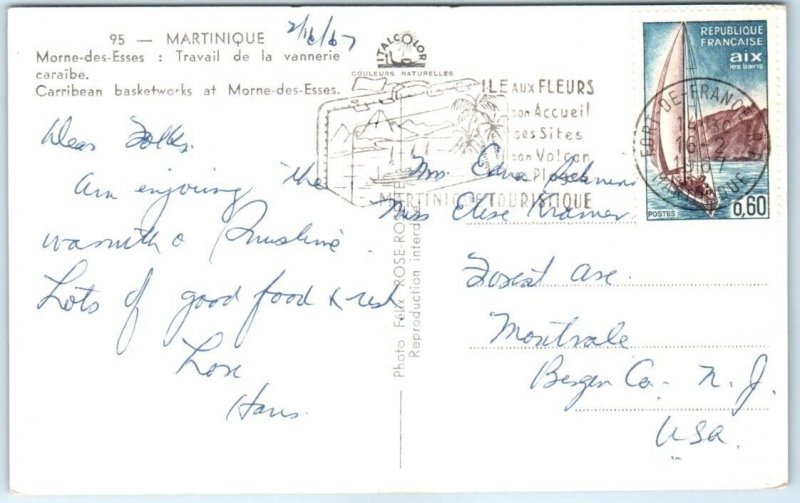 95 — MARTINIQUE
Morne-des-Esses : Travail de la vannerie
caraïbe.
Carribean basketworks at Morne-des-Esses.
2/16/67
ITALCOLOR
COULEURS NATURELLES
Dear Folks.
Am enjoying the
warmth & Sunshine.
Lots of good food & rest
Love
Hans.
Photo Félix ROSE-ROSE
Reproduction interdite
ILE AUX FLEURS
son Accueil
ses Sites
son Volcan
MARTINIQUE TOURISTIQUE
REPUBLIQUE
FRANÇAISE
aix
les bains
POSTES
0,60
FORT-DE-FRANCE
16-2
1967
MARTINIQUE
Mrs. Edna
Miss Elise Kramer
Forest Ave.
Montvale
Bergen Co. N. J.
USA.